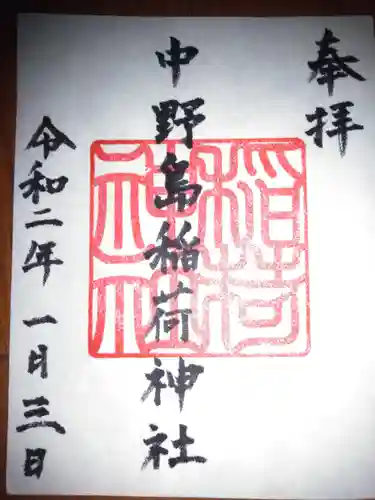 奉拝
中野島稲荷神社
稲荷神社
令和二年一日三日